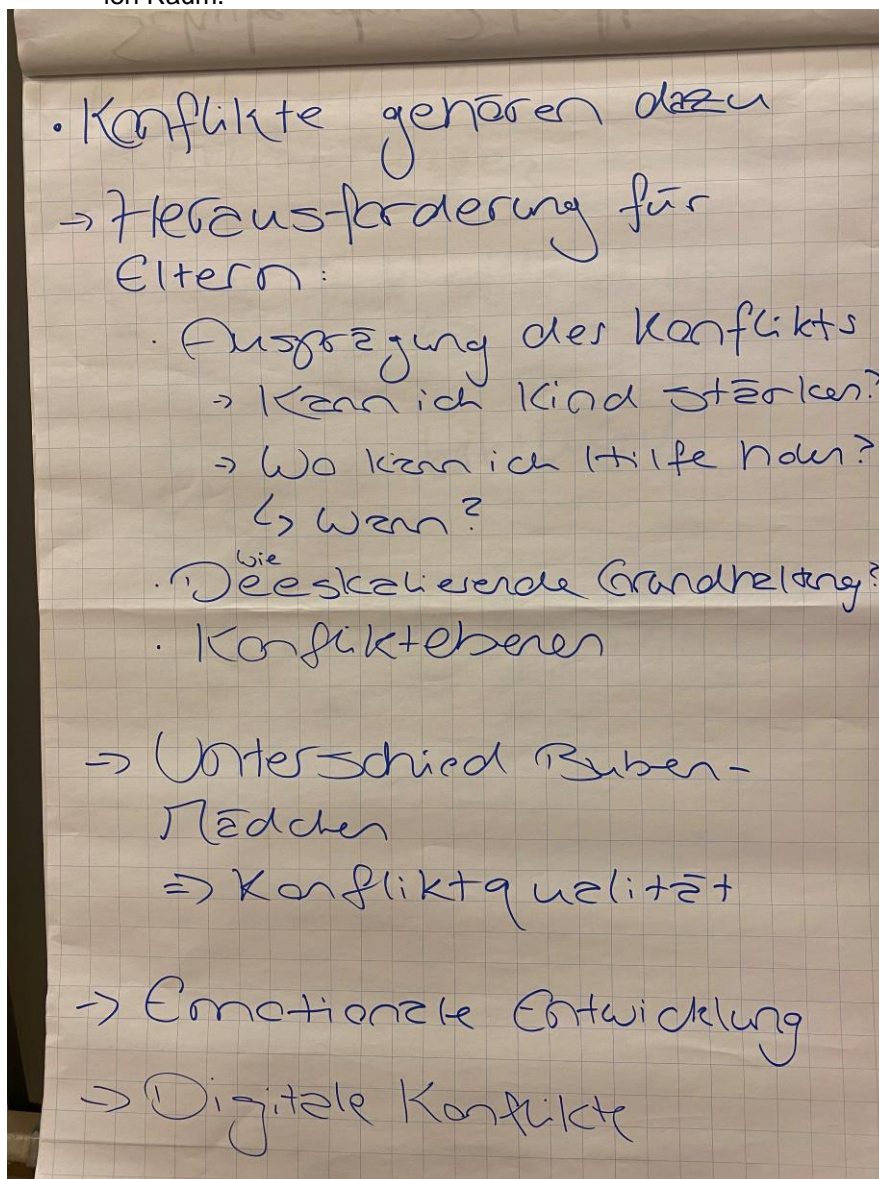 · Konflikte gehören dazu
→ Herausforderung für
Eltern:
· Ausprägung des Konflikts
→ Kann ich Kind stärken?
→ Wo kann ich Hilfe holen?
↳ Wann?
wie
· Deeskalierende Grundhaltung?
· Konfliktebenen
→ Unterschied Buben-
Mädchen
⇒ Konfliktqualität
→ Emotionale Entwicklung
→ Digitale Konflikte